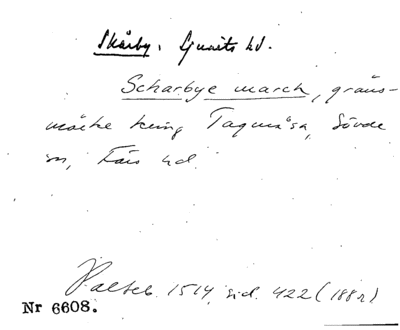 Skårby. Ljunits hd.
Scharbye march, gräns-
märke kring Tagmåsa, Sövde
sn, Färs hd.
Palteb. 1514, sid. 422 (188r)
Nr 6608.